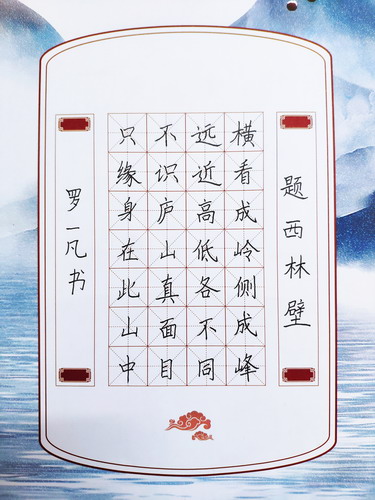 题西林壁
横看成岭侧成峰
远近高低各不同
不识庐山真面目
只缘身在此山中
罗一凡书